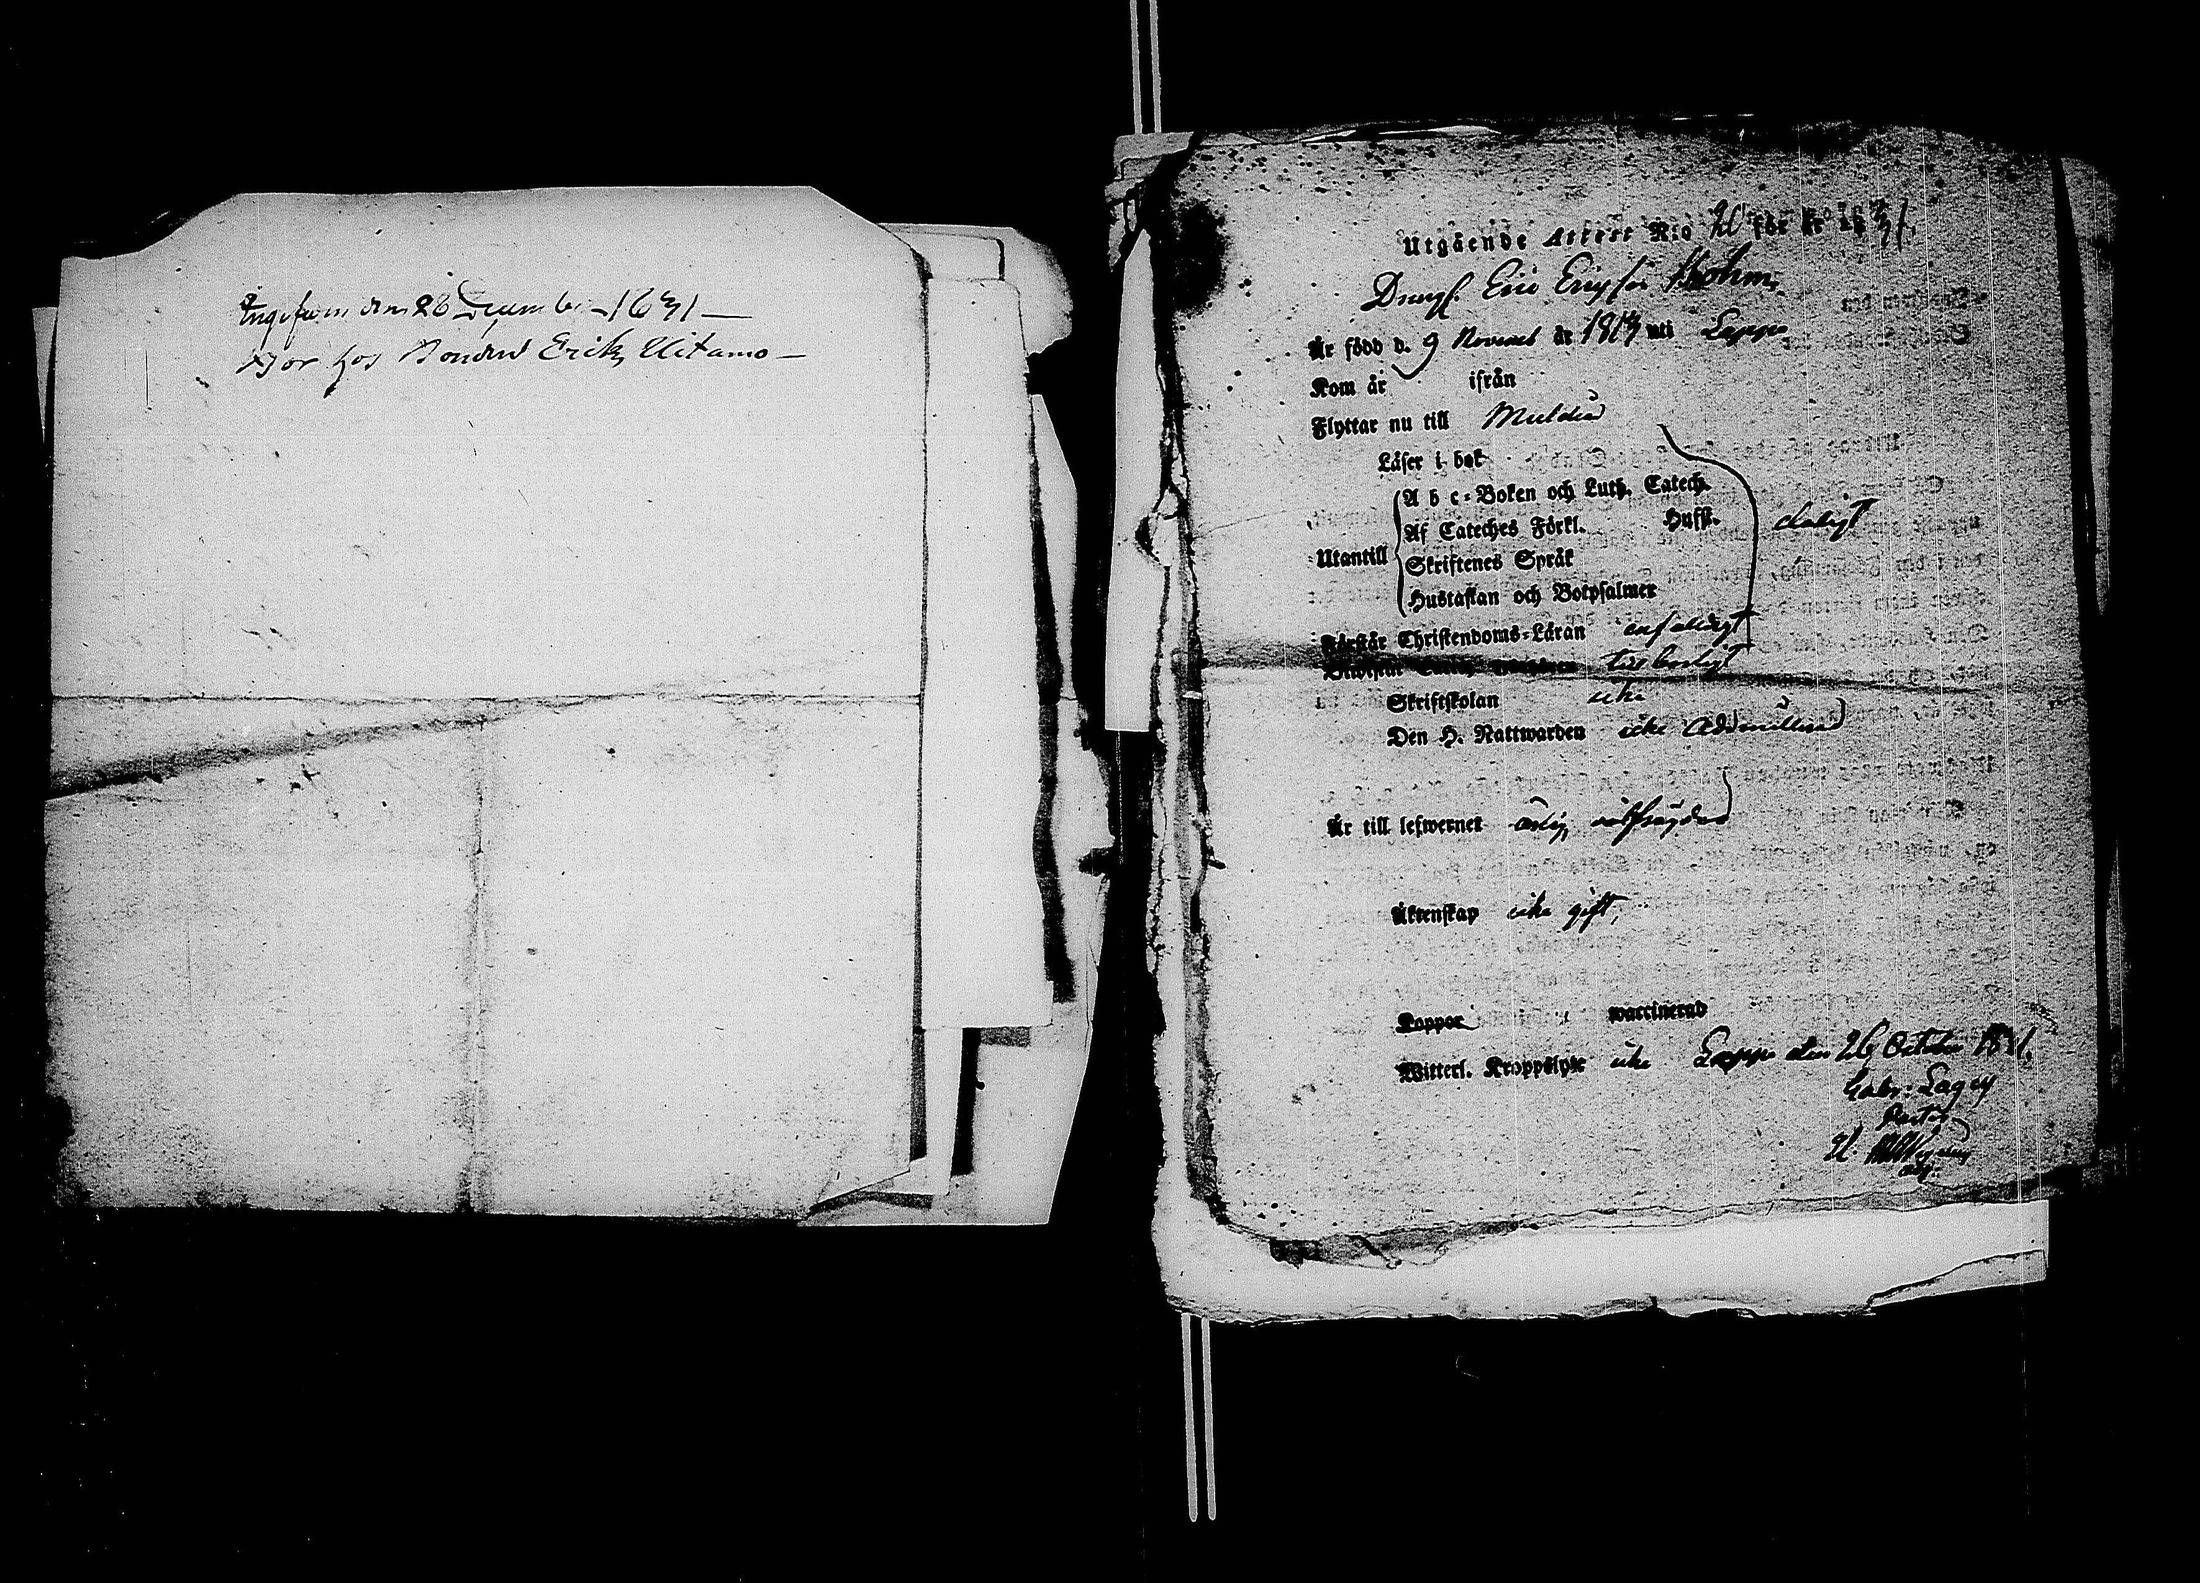 Ingifwen den 28 December 1831
Bor hos Bonden Erik Uitamo
Utgående Attest N:o 20 för år 1831.
Drengf. Eric Ericsson
Är född d. 9 Novemb år 1813 uti Lappo
Kom år ifrån
Flyttar nu till
Läser i bok
Utantill
A b c-Boken och Luth. Catech.
Af Cateches Förkl. Hufst.
Skriftenes Språk
Hustaflan och Botpsalmer
daligt
Förstår Christendoms-Läran enfaldigt
tilbörligt
Skriftskolan icke
Den H. Nattwarden icke Admitterad
Är till lefwernet ärlig
Äktenskap icke gift,
Koppor waccinerad
Witterl. Kroppslyte icke Lappo den 26 October 1831.
Gabr: Lagus
Pastor